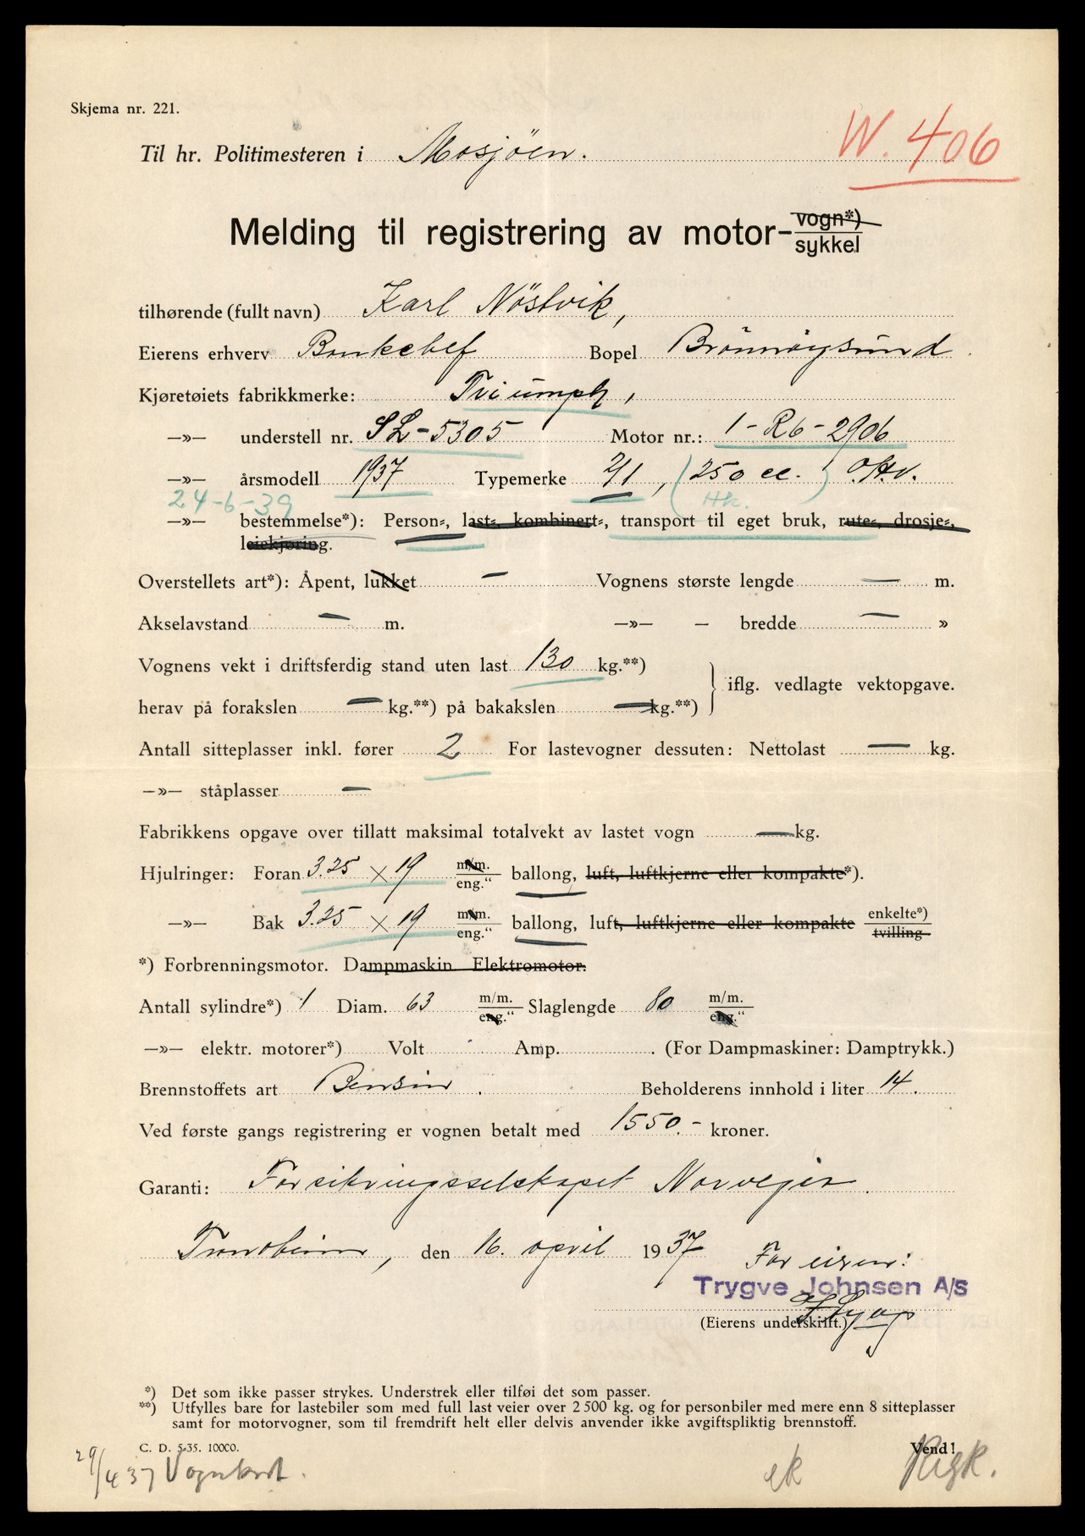 Skjema nr. 221.
W. 406
Til hr. Politimesteren i Mosjöen.
Melding til registrering av motor-vogn*) sykkel
tilhørende (fullt navn) Karl Nöstvik,
Eierens erhverv Bankchef Bopel Brönnöysund
Kjøretøiets fabrikkmerke: Triumph,
—»— understell nr. SL-5305 Motor nr.: 1-R6-2906
—»— årsmodell 1937 Typemerke 2/1, (250 cc.) O.H.V.
24-6-39 Hk.
—»— bestemmelse*): Person-, last-, kombinert-, transport til eget bruk, rute-, drosje-,
leiekjøring.
Overstellets art*): Åpent, lukket — Vognens største lengde — m.
Akselavstand — m. —»— — bredde — »
Vognens vekt i driftsferdig stand uten last 130 kg.**)
iflg. vedlagte vektopgave.
herav på forakslen — kg.**) på bakakslen — kg.**)
Antall sitteplasser inkl. fører 2 For lastevogner dessuten: Nettolast — kg.
—»— ståplasser —
Fabrikkens opgave over tillatt maksimal totalvekt av lastet vogn — kg.
Hjulringer: Foran 3.25 × 19 m/m. eng.“ ballong, luft, luftkjerne eller kompakte*).
—»— Bak 3.25 × 19 m/m. eng.“ ballong, luft, luftkjerne eller kompakte enkelte*) tvilling
*) Forbrenningsmotor. Dampmaskin. Elektromotor.
Antall sylindre*) 1 Diam. 63 m/m. eng.“ Slaglengde 80 m/m. eng.“
—»— elektr. motorer*) Volt Amp. . (For Dampmaskiner: Damptrykk.)
Brennstoffets art Bensin . Beholderens innhold i liter 14.
Ved første gangs registrering er vognen betalt med 1550.- kroner.
Garanti: Forsikringsselskapet Norvegia.
Trondheim, den 16. april 1937
For eieren:
Trygve Johnsen A/S
(Eierens underskrift.)
*) Det som ikke passer strykes. Understrek eller tilføi det som passer.
**) Utfylles bare for lastebiler som med full last veier over 2 500 kg. og for personbiler med mere enn 8 sitteplasser
samt for motorvogner, som til fremdrift helt eller delvis anvender ikke avgiftspliktig brennstoff.
C. D. 5-35. 10000. Vend!
29/4 37 Vognkort. ek Rigk.